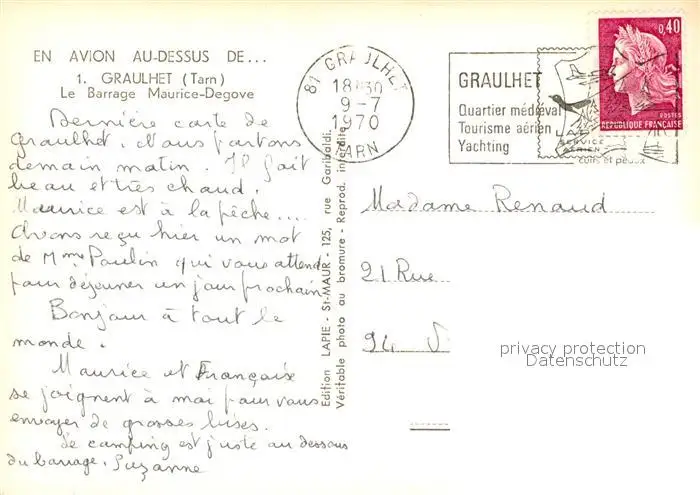 EN AVION AU-DESSUS DE...
1. GRAULHET (Tarn)
Le Barrage Maurice-Degove
Dernière carte de
Graulhet. Nous partons
demain matin. Il fait
beau et très chaud.
Maurice est à la pêche....
Avons reçu hier un mot
de Mme Paulin qui vous attend
pour déjeuner un jour prochain
Bonjour à tout le
monde.
Maurice et Françoise
se joignent à moi pour vous
envoyer de grosses bises.
Le camping est juste au dessous
du barrage. Suzanne
Edition LAPIE - St-MAUR - 125, rue Garibaldi.
Véritable photo au bromure - Reprod. interdite
81 GRAULHET
18H30
9-7
1970
TARN
GRAULHET
Quartier médiéval
Tourisme aérien
Yachting
cuirs et peaux
LAPIE
SERVICE
AÉRIEN
0,40
POSTES
REPUBLIQUE FRANÇAISE
Madame Renaud
21 Rue
94 S
privacy protection
Datenschutz